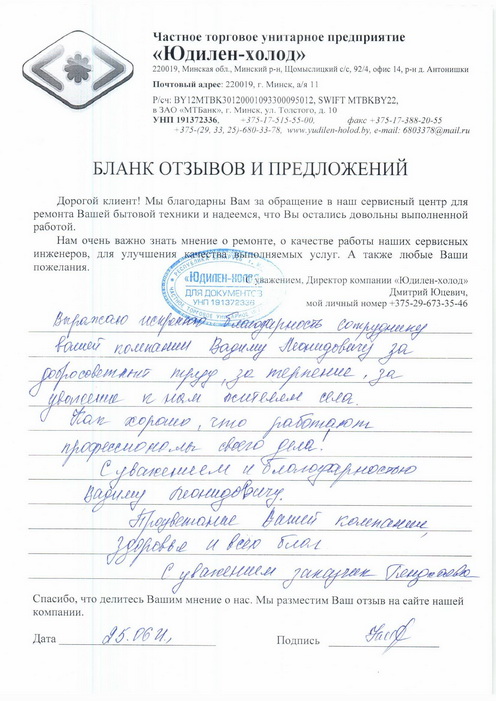 Частное торговое унитарное предприятие
«Юдилен-холод»
220019, Минская обл., Минский р-н, Щомыслицкий с/с, 92/4, офис 14, р-н д. Антонишки
Почтовый адрес: 220019, г. Минск, а/я 11
Р/сч: BY12MTBK30120001093300095012, SWIFT MTBKBY22,
в ЗАО «МТБанк», г. Минск, ул. Толстого, д. 10
УНП 191372336, +375-17-515-55-00, факс +375-17-388-20-55
+375-(29, 33, 25)-680-33-78, www.yudilen-holod.by, e-mail: 6803378@mail.ru
БЛАНК ОТЗЫВОВ И ПРЕДЛОЖЕНИЙ
Дорогой клиент! Мы благодарны Вам за обращение в наш сервисный центр для
ремонта Вашей бытовой техники и надеемся, что Вы остались довольны выполненной
работой.
Нам очень важно знать мнение о ремонте, о качестве работы наших сервисных
инженеров, для улучшения качества выполняемых услуг. А также любые Ваши
пожелания.
С уважением, Директор компании «Юдилен-холод»
Дмитрий Юцевич,
мой личный номер +375-29-673-35-46
«ЮДИЛЕН-ХОЛОД»
ДЛЯ ДОКУМЕНТОВ
УНП 191372336
Выражаю искреннюю благодарность сотруднику
вашей компании Вадиму Леонидовичу за
добросовестный труд, за терпение, за
уважение к нам жителям села.
Как хорошо, что работают
профессионалы своего дела!
С уважением и благодарностью
Вадиму Леонидовичу.
Процветание Вашей компании,
здоровья и всех благ
С уважением заказчик
Спасибо, что делитесь Вашим мнение о нас. Мы разместим Ваш отзыв на сайте нашей
компании.
Дата 25.06
Подпись